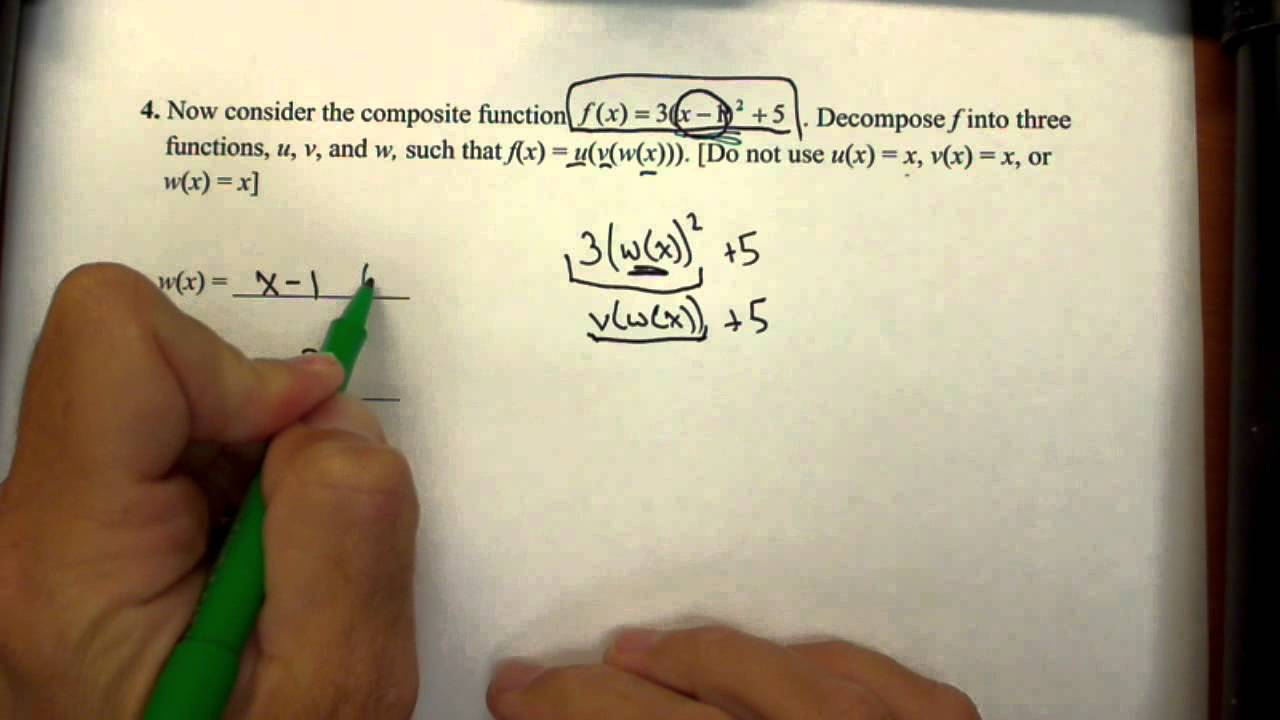 4. Now consider the composite function f(x) = 3(x − 1)² + 5 . Decompose f into three
functions, u, v, and w, such that f(x) = u(v(w(x))). [Do not use u(x) = x, v(x) = x, or
w(x) = x]
3(w(x))² +5
w(x) = x − 1
v(w(x)) +5